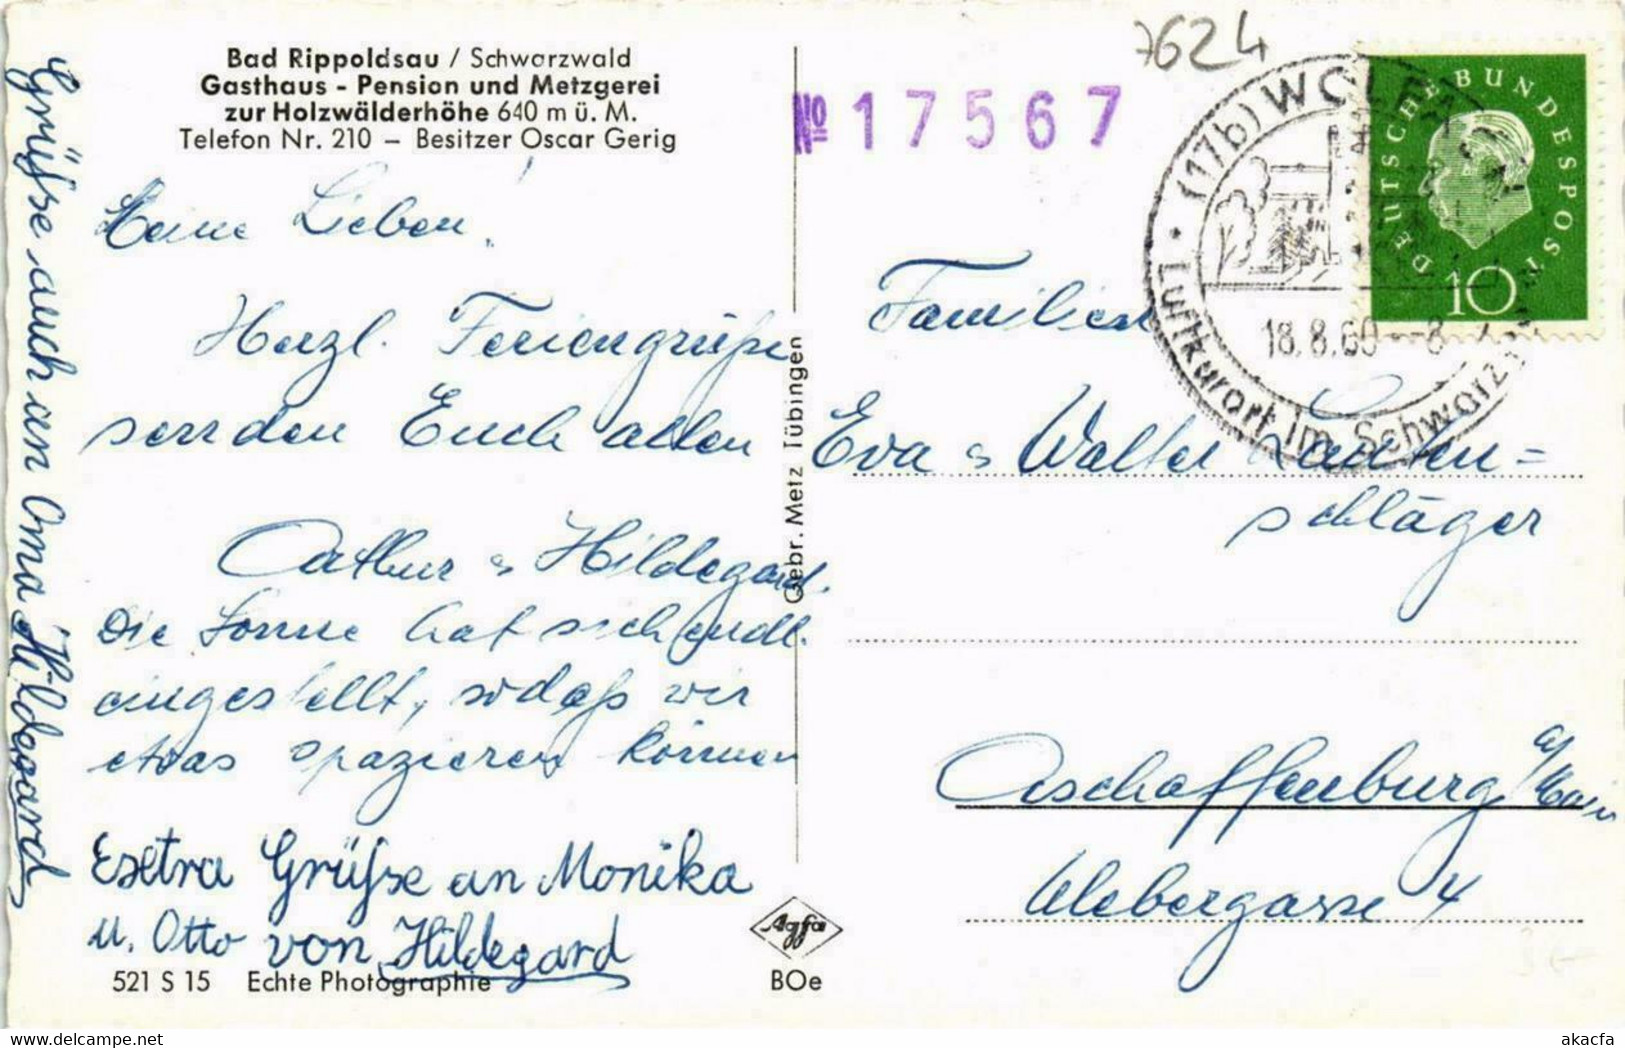 Bad Rippoldsau / Schwarzwald
Gasthaus - Pension und Metzgerei
zur Holzwälderhöhe 640 m ü. M.
Telefon Nr. 210 – Besitzer Oscar Gerig
Meine Lieben!
Herzl. Feriengrüße
senden Euch allen
Arthur & Hildegard.
Die Sonne hat sich endl.
eingestellt, sodaß wir
etwas spazieren können
Esetra Grüße an Monika
u. Otto von Hildegard
521 S 15 Echte Photographie
Grüsse auch an Oma Hildegard
Gebr. Metz Tübingen
Agfa
BOe
7624
№ 17567
(17b) WOLFA
18.8.60--8
Luftkurort im Schwarz
DEUTSCHE BUNDESPOST
10
Familien
Eva & Walter Lauten=
schläger
Aschaffenburg a/Main
Webergasse 4
akacfa